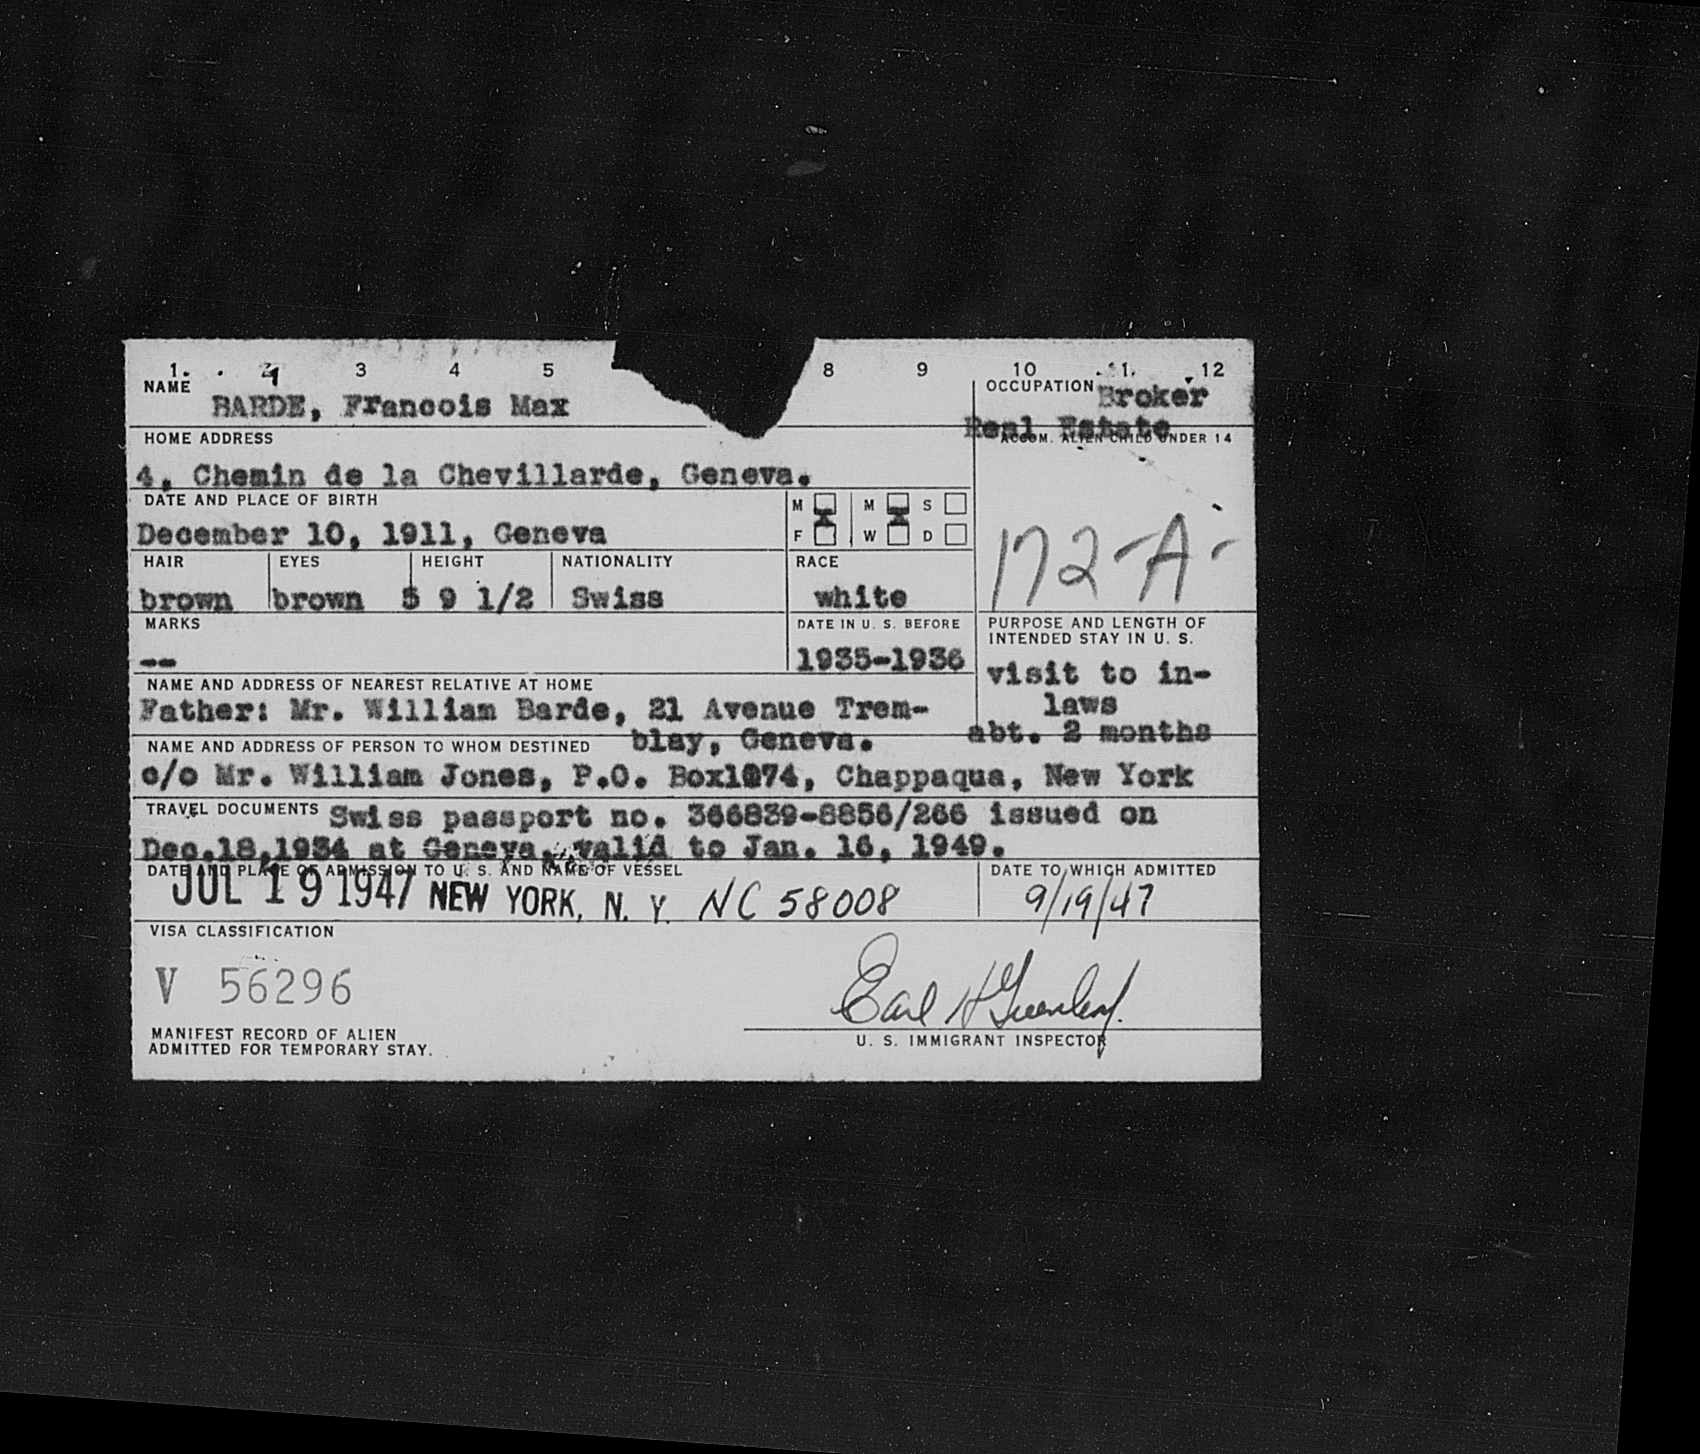 1. 2 3 4 5 8 9 10 11. 12
NAME BARDE, Francois Max
OCCUPATION Broker
Real Estate
HOME ADDRESS
4, Chemin de la Chevillarde, Geneva.
ACCOM. ALIEN CHILD UNDER 14
172-A-
DATE AND PLACE OF BIRTH
December 10, 1911, Geneva
M M S
F W D
HAIR EYES HEIGHT NATIONALITY RACE
brown brown 5 9 1/2 Swiss white
MARKS
--
DATE IN U. S. BEFORE
1935-1936
PURPOSE AND LENGTH OF
INTENDED STAY IN U. S.
visit to in-
laws
abt. 2 months
NAME AND ADDRESS OF NEAREST RELATIVE AT HOME
Father: Mr. William Barde, 21 Avenue Trem-
blay, Geneva.
NAME AND ADDRESS OF PERSON TO WHOM DESTINED
c/o Mr. William Jones, P.O. Box1074, Chappaqua, New York
TRAVEL DOCUMENTS Swiss passport no. 366839-8856/266 issued on
Dec.18,1934 at Geneva, valid to Jan. 16, 1949.
DATE AND PLACE OF ADMISSION TO U. S. AND NAME OF VESSEL
JUL 19 1947 NEW YORK, N. Y. NC 58008
DATE TO WHICH ADMITTED
9/19/47
VISA CLASSIFICATION
V 56296
Earl H
U. S. IMMIGRANT INSPECTOR
MANIFEST RECORD OF ALIEN
ADMITTED FOR TEMPORARY STAY.